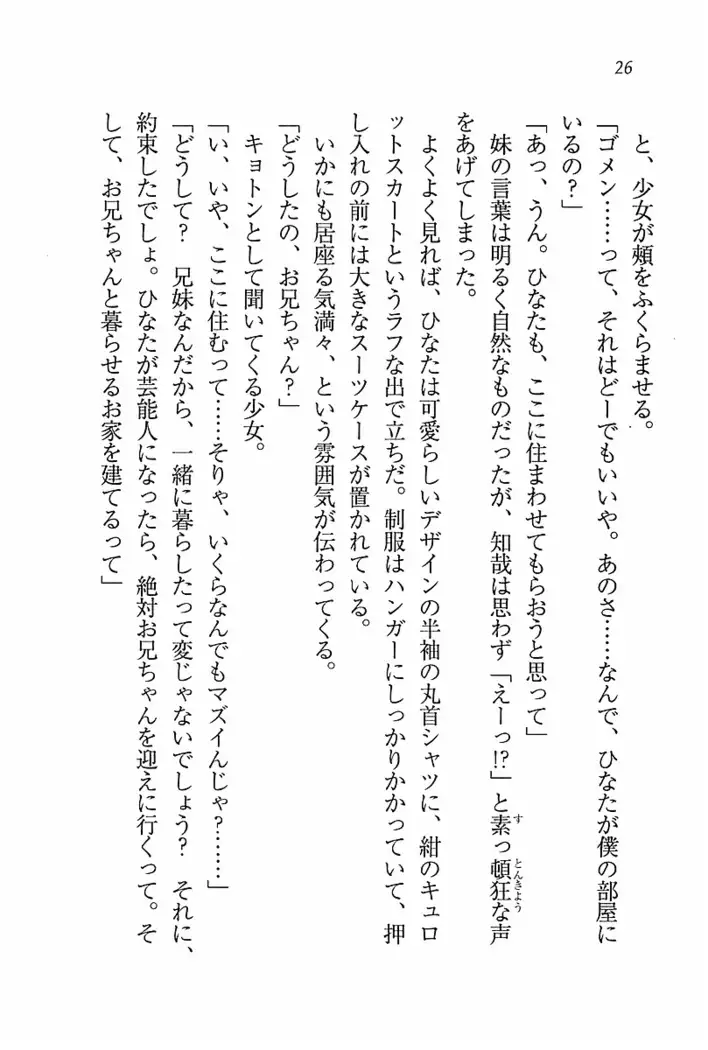 26
と、少女が頰をふくらませる。
「ゴメン……って、それはどーでもいいや。あのさ……なんで、ひなたが僕の部屋に
いるの？」
「あっ、うん。ひなたも、ここに住まわせてもらおうと思って」
妹の言葉は明るく自然なものだったが、知哉は思わず「えーっ!?」と素っ頓狂な声
をあげてしまった。
よくよく見れば、ひなたは可愛らしいデザインの半袖の丸首シャツに、紺のキュロ
ットスカートというラフな出で立ちだ。制服はハンガーにしっかりかかっていて、押
し入れの前には大きなスーツケースが置かれている。
いかにも居座る気満々、という雰囲気が伝わってくる。
「どうしたの、お兄ちゃん？」
キョトンとして聞いてくる少女。
「い、いや、ここに住むって……そりゃ、いくらなんでもマズイんじゃ？………」
「どうして？　兄妹なんだから、一緒に暮らしたって変じゃないでしょう？　それに、
約束したでしょ。ひなたが芸能人になったら、絶対お兄ちゃんを迎えに行くって。そ
して、お兄ちゃんと暮らせるお家を建てるって」